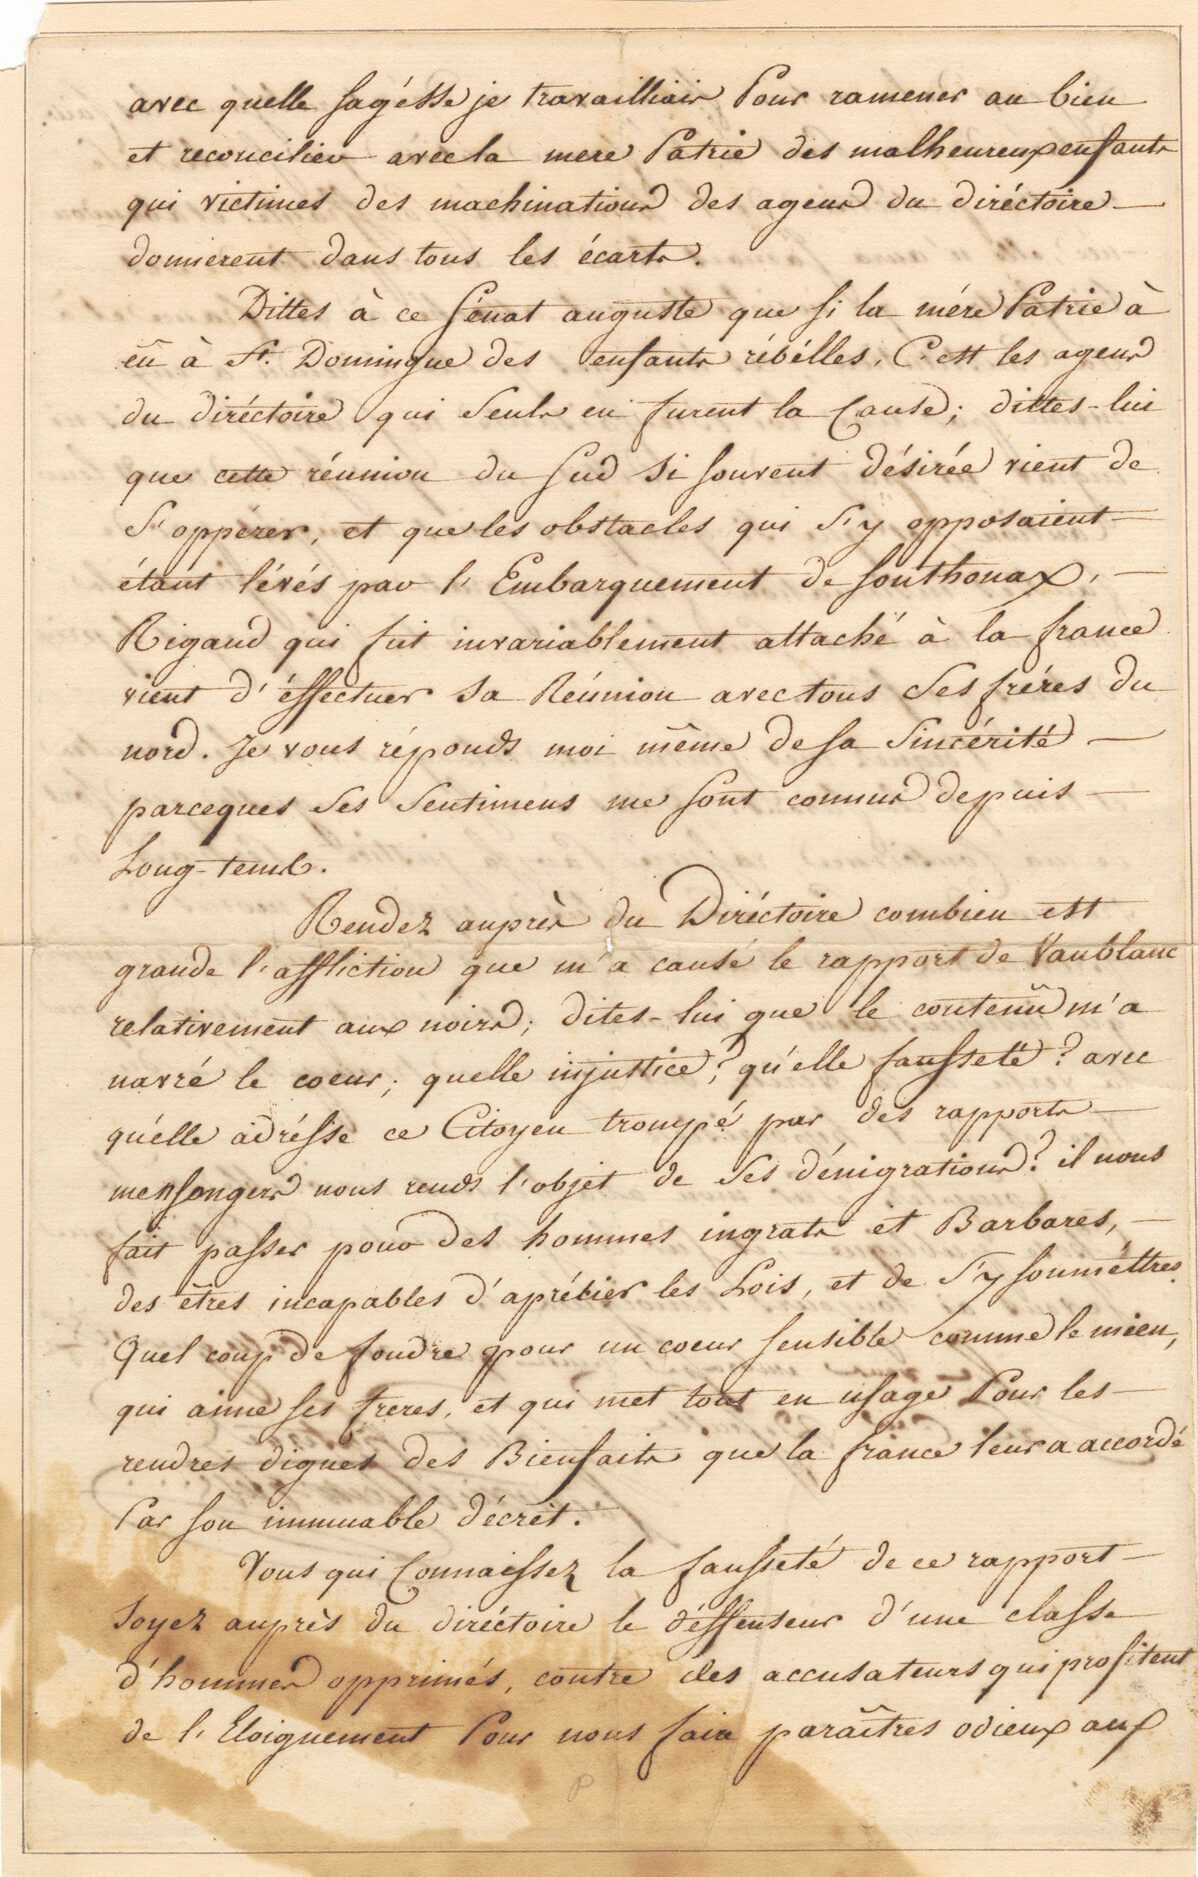 avec quelle sagésse je travailliais Pour ramener au bien
et reconcilier avec la mere Patrie des malheureux enfants
qui victimes des machinations des agens du diréctoire —
donnerent dans tous les écarts.
Dittes à ce Sénat auguste que si la mére Patrie à
eû à St. Domingue des enfants rébélles, C'est les agens
du diréctoire qui Seuls en furent la Cause; dittes-lui
que cette réunion du Sud si souvent désirée vient de
S'oppérer, et que les obstacles qui S'y opposaient —
étant lévés par l'Embarquement de Sonthonax, —
Rigaud qui fut invariablement attaché à la france
vient d'éffectuer sa Réunion avec tous Ses fréres du
nord. Je vous réponds moi même de sa Sincérité —
parceques Ses Sentimens me sont connus depuis —
Long-tems.
Rendez auprès du Diréctoire combien est
grande l'affliction que m'a causé le rapport de Vaublanc
relativement aux noirs; dites-lui que le contenû m'a
navré le coeur; quelle injustice? qu'elle fausseté? avec
qu'elle adrésse ce Citoyen trompé par des rapports —
mensongers nous rends l'objet de Ses dénigrations? il nous
fait passer pour des hommes ingrats et Barbares, —
des êtres incapables d'aprétier les Lois, et de S'y souméttres.
Quel coup de foudre pour un coeur sensible comme le mien,
qui aime ses freres, et qui met tout en usage Pour les —
rendres dignes des Bienfaits que la france leur a accordé
Par son immuable décret.
Vous qui Connaissez la fausseté de ce rapport —
Soyez auprès du diréctoire le déffenseur d'une classe
d'hommes opprimés, contre des accusateurs qui profitent
de l'Eloignement Pour nous faire paraîtres odieux aux